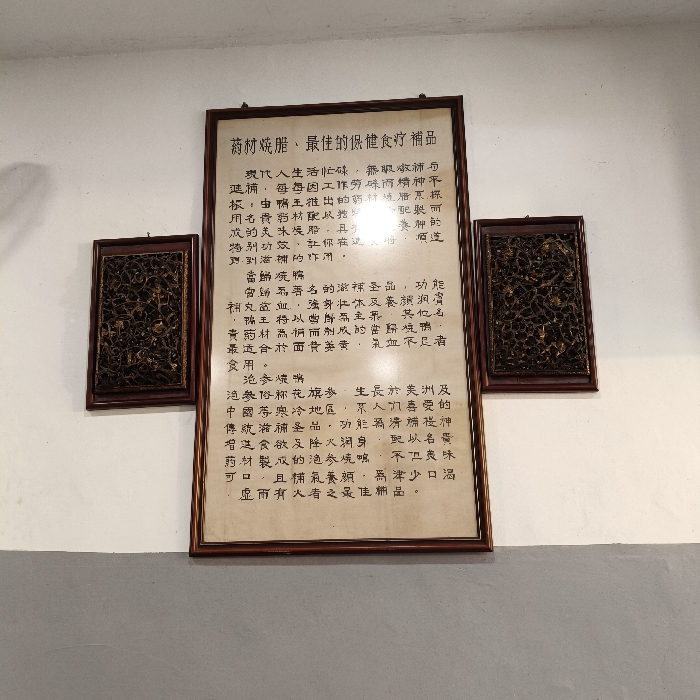 药材烧腊、最佳的保健食疗補品
現代人生活忙碌，無暇緻補与
進補，每每因工作劳碌而精神不
振，由鴨王推出的药材烧腊系採
用名貴药材配以独 配製而
成的美味烧腊，具 養神的
特别功效，让你在 時，順道
得到滋補的作用。
當歸烧鴨
當歸爲著名的滋補圣品，功能
補丸盗血，強身壮体及養顔润膚
，鴨王特以當歸爲主 ，其他名
貴药材爲補而制成的當歸烧鴨，
最适合於面貴姜黄，氣血不足者
食用。
泡参烧鴨
泡参俗称花旗参，生長於美洲及
中國等寒冷地區，系人们喜愛的
傳統滋補圣品，功能爲清補提神
增進食欲及降火润身，配以名貴
药材製成的泡参烧鴨，不但美味
可口，且有補氣養顔，爲津少口渴
，虚而有火者之最佳補品。